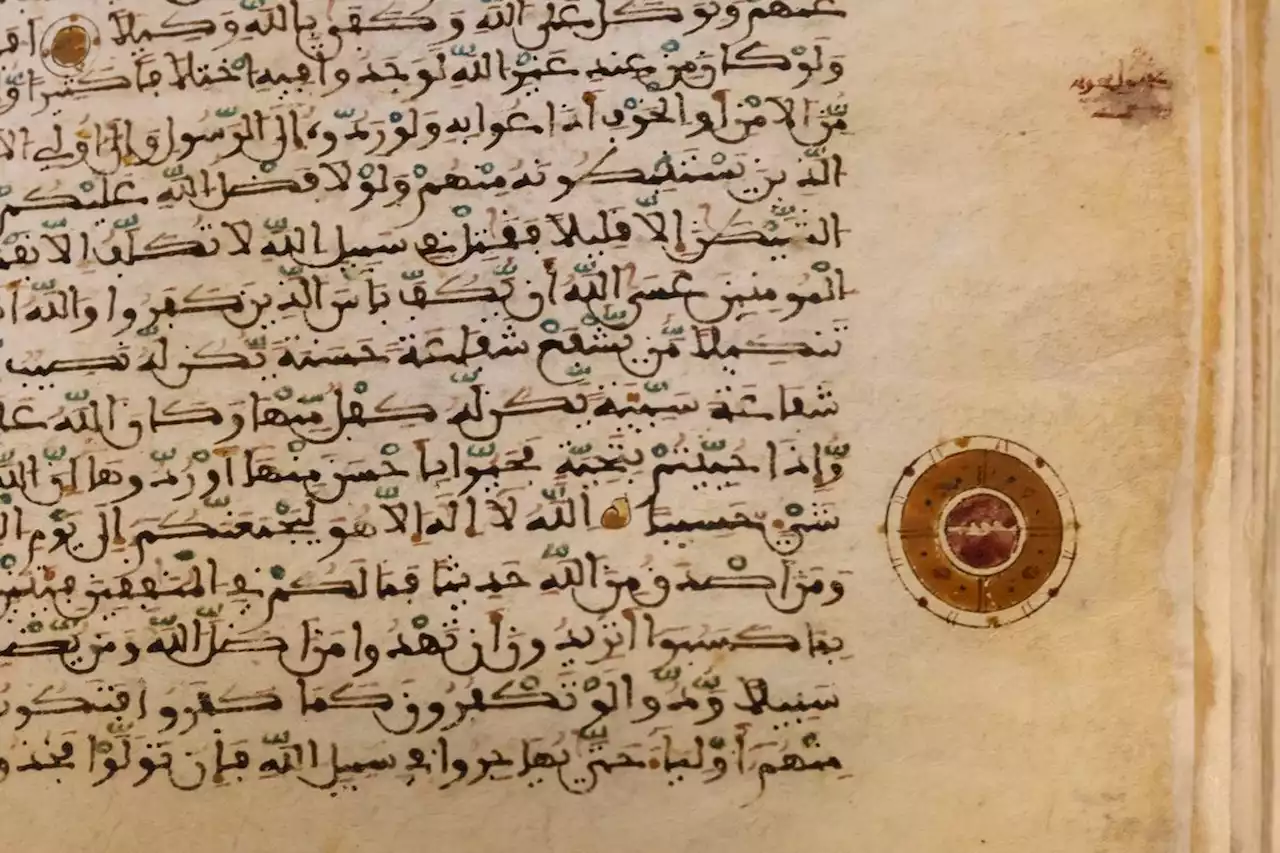 عنهم وتوكل على الله وكفى بالله وكيلا
ولو كان من عند غير الله لوجدوا فيه اختلافا كثيرا
من الامن أو الخوف أذاعوا به ولو ردوه إلى الرسول وإلى أولي
الذين يستنبطونه منهم ولولا فضل الله عليكم
الشيطن إلا قليلا فقتل في سبيل الله لا تكلف إلا
المومنين عسى الله أن يكف بأس الذين كفروا والله
تنكيلا مّن يّشفع شفاعة حسنة يّكن لّه نصيب
شفاعة سيّئة يّكن لّه كفل مّنها وكان الله
وّإذا حيّيتم بتحيّة فحيّوا بأحسن منها أو ردّوها إنّ الله
شيء حسيبا الله لا إله إلّا هو ليجمعنّكم إلى يوم
ومن أصدق من الله حديثا فما لكم في المنفقين فئتين
بما كسبوا أتريدون أن تهدوا من أضلّ الله ومن
سبيلا ودّوا لو تكفرون كما كفروا
منهم أولياء حتّى يهاجروا في سبيل الله فإن تولّوا